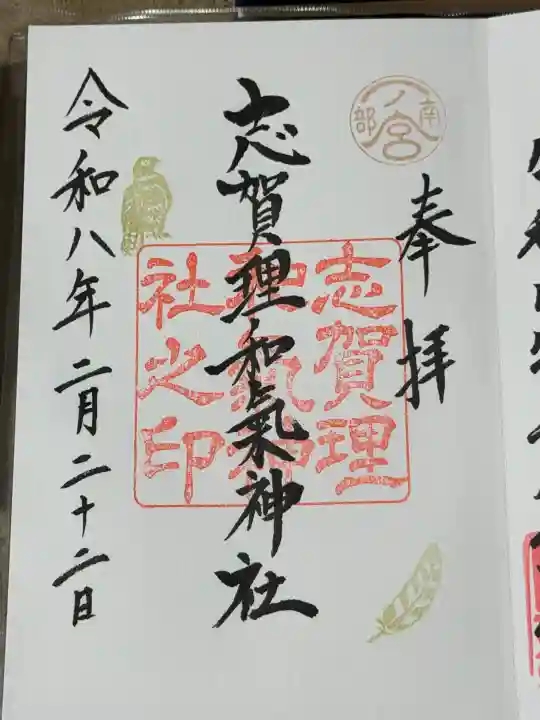 南部
一ノ宮
奉拝
志賀理和氣神社
志賀理
和氣神
社之印
令和八年二月二十二日